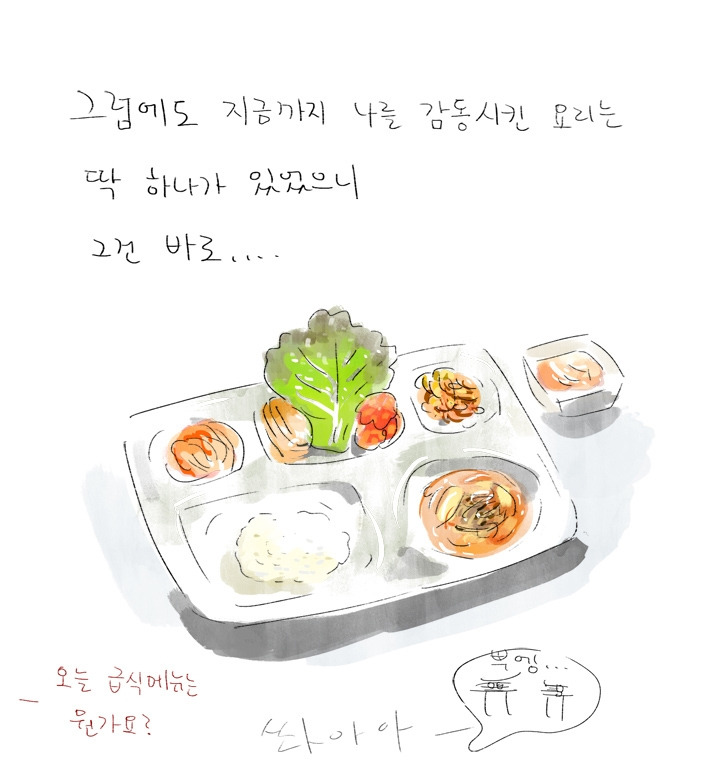 그럼에도 지금까지 나를 감동시킨 요리는
딱 하나가 있었으니
그건 바로....
오늘 급식메뉴는
뭔가요?
쏴아아
뿌엥...
ㅠ ㅠ